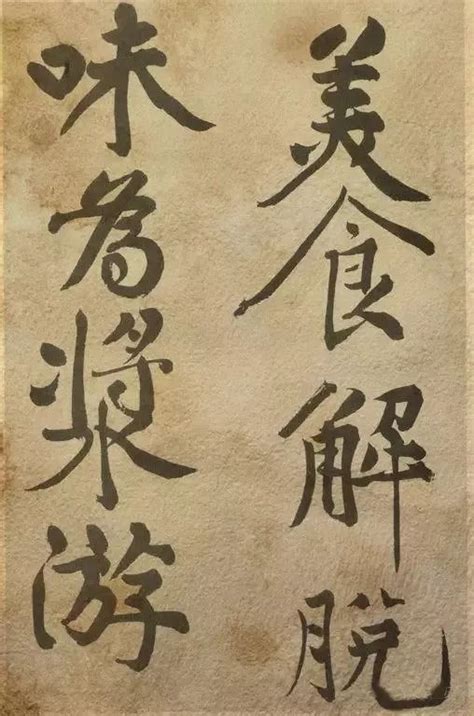 美食解脫
味為漿游